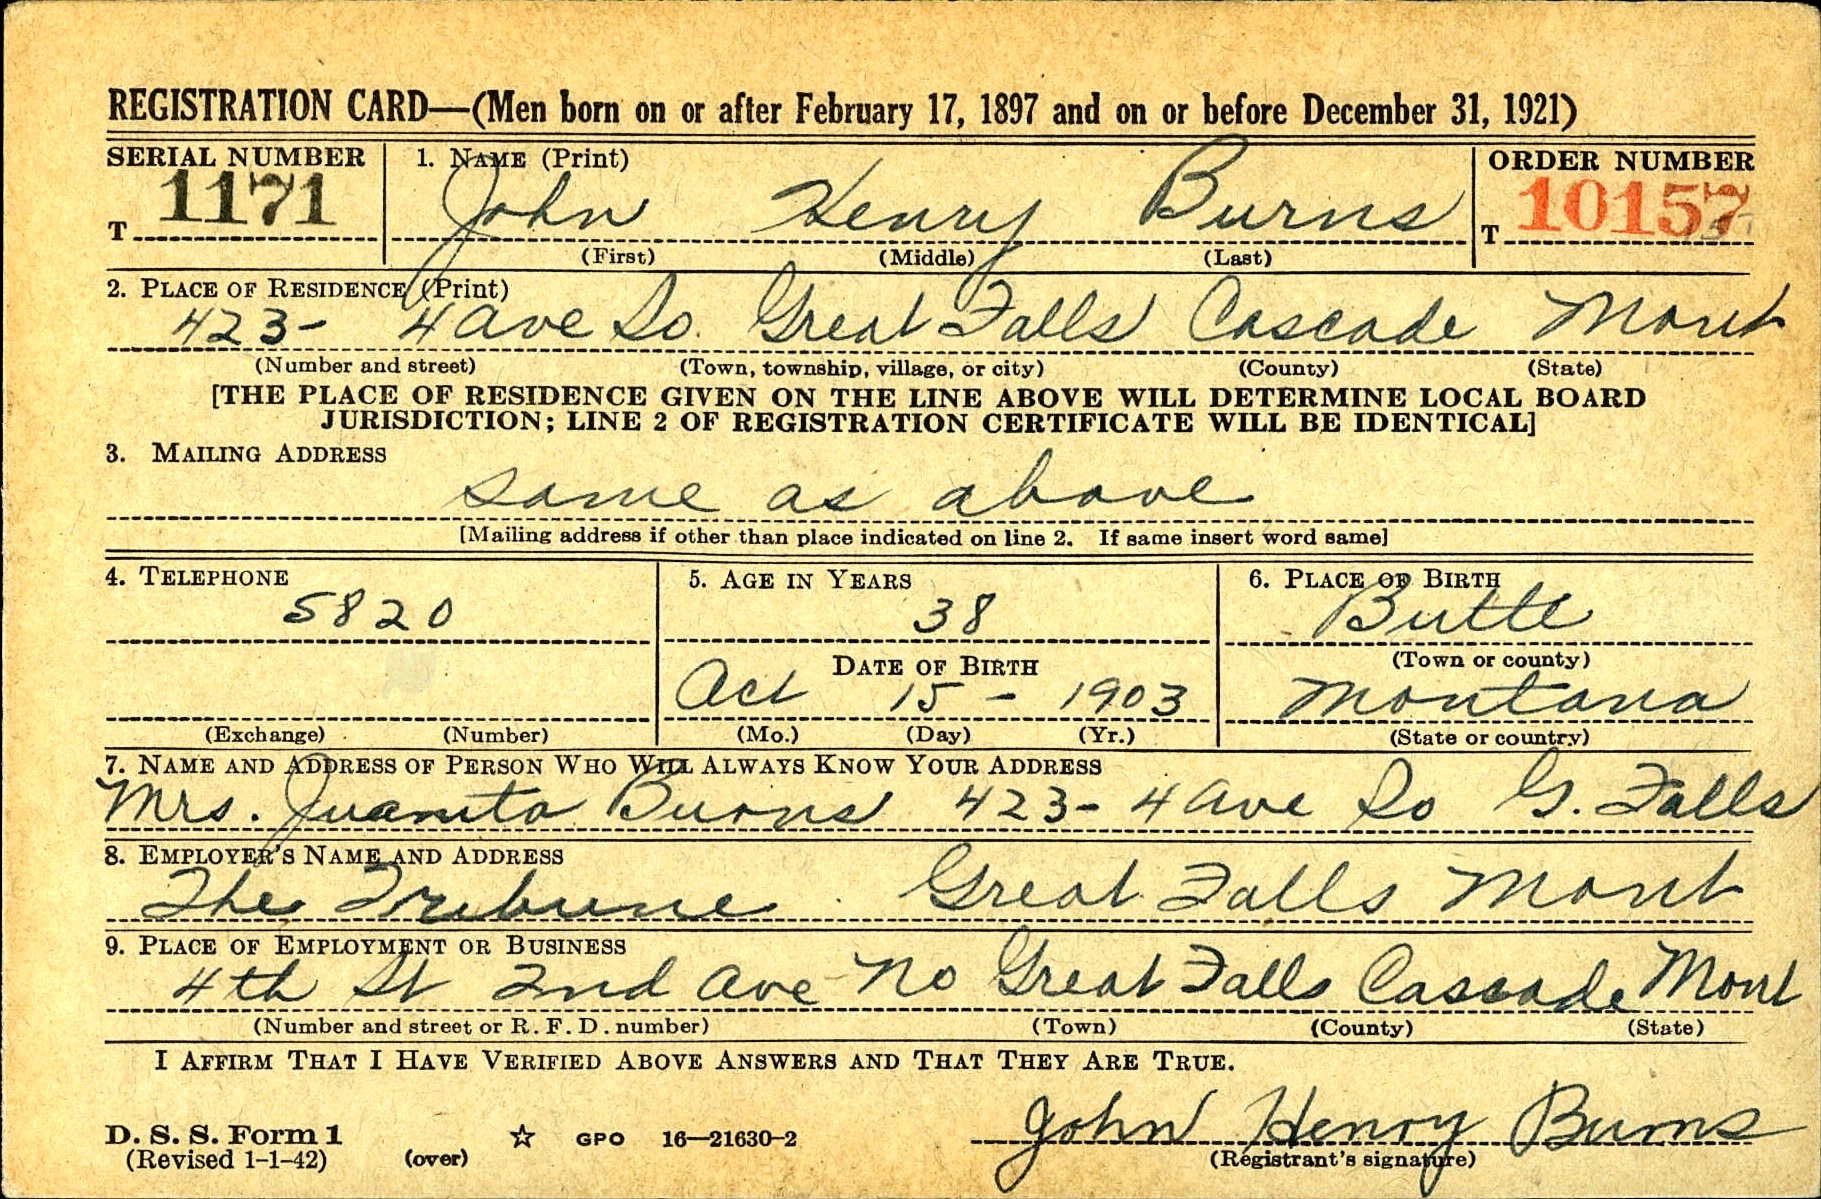 REGISTRATION CARD—(Men born on or after February 17, 1897 and on or before December 31, 1921)
SERIAL NUMBER 1. NAME (Print) ORDER NUMBER
T 1171 John Henry Burns T 10157
(First) (Middle) (Last)
2. PLACE OF RESIDENCE (Print)
423- 4 Ave So. Great Falls Cascade Mont
(Number and street) (Town, township, village, or city) (County) (State)
[THE PLACE OF RESIDENCE GIVEN ON THE LINE ABOVE WILL DETERMINE LOCAL BOARD
JURISDICTION; LINE 2 OF REGISTRATION CERTIFICATE WILL BE IDENTICAL]
3. MAILING ADDRESS
same as above
[Mailing address if other than place indicated on line 2. If same insert word same]
4. TELEPHONE 5. AGE IN YEARS 6. PLACE OF BIRTH
5820 38 Butte
DATE OF BIRTH (Town or county)
Oct 15 - 1903 Montana
(Exchange) (Number) (Mo.) (Day) (Yr.) (State or country)
7. NAME AND ADDRESS OF PERSON WHO WILL ALWAYS KNOW YOUR ADDRESS
Mrs. Juanita Burns 423- 4 Ave So G. Falls
8. EMPLOYER'S NAME AND ADDRESS
The Tribune Great Falls Mont
9. PLACE OF EMPLOYMENT OR BUSINESS
4th St 2nd Ave No Great Falls Cascade Mont
(Number and street or R. F. D. number) (Town) (County) (State)
I AFFIRM THAT I HAVE VERIFIED ABOVE ANSWERS AND THAT THEY ARE TRUE.
John Henry Burns
D. S. S. Form 1 ☆ GPO 16—21630-2
(Revised 1-1-42) (over) (Registrant's signature)